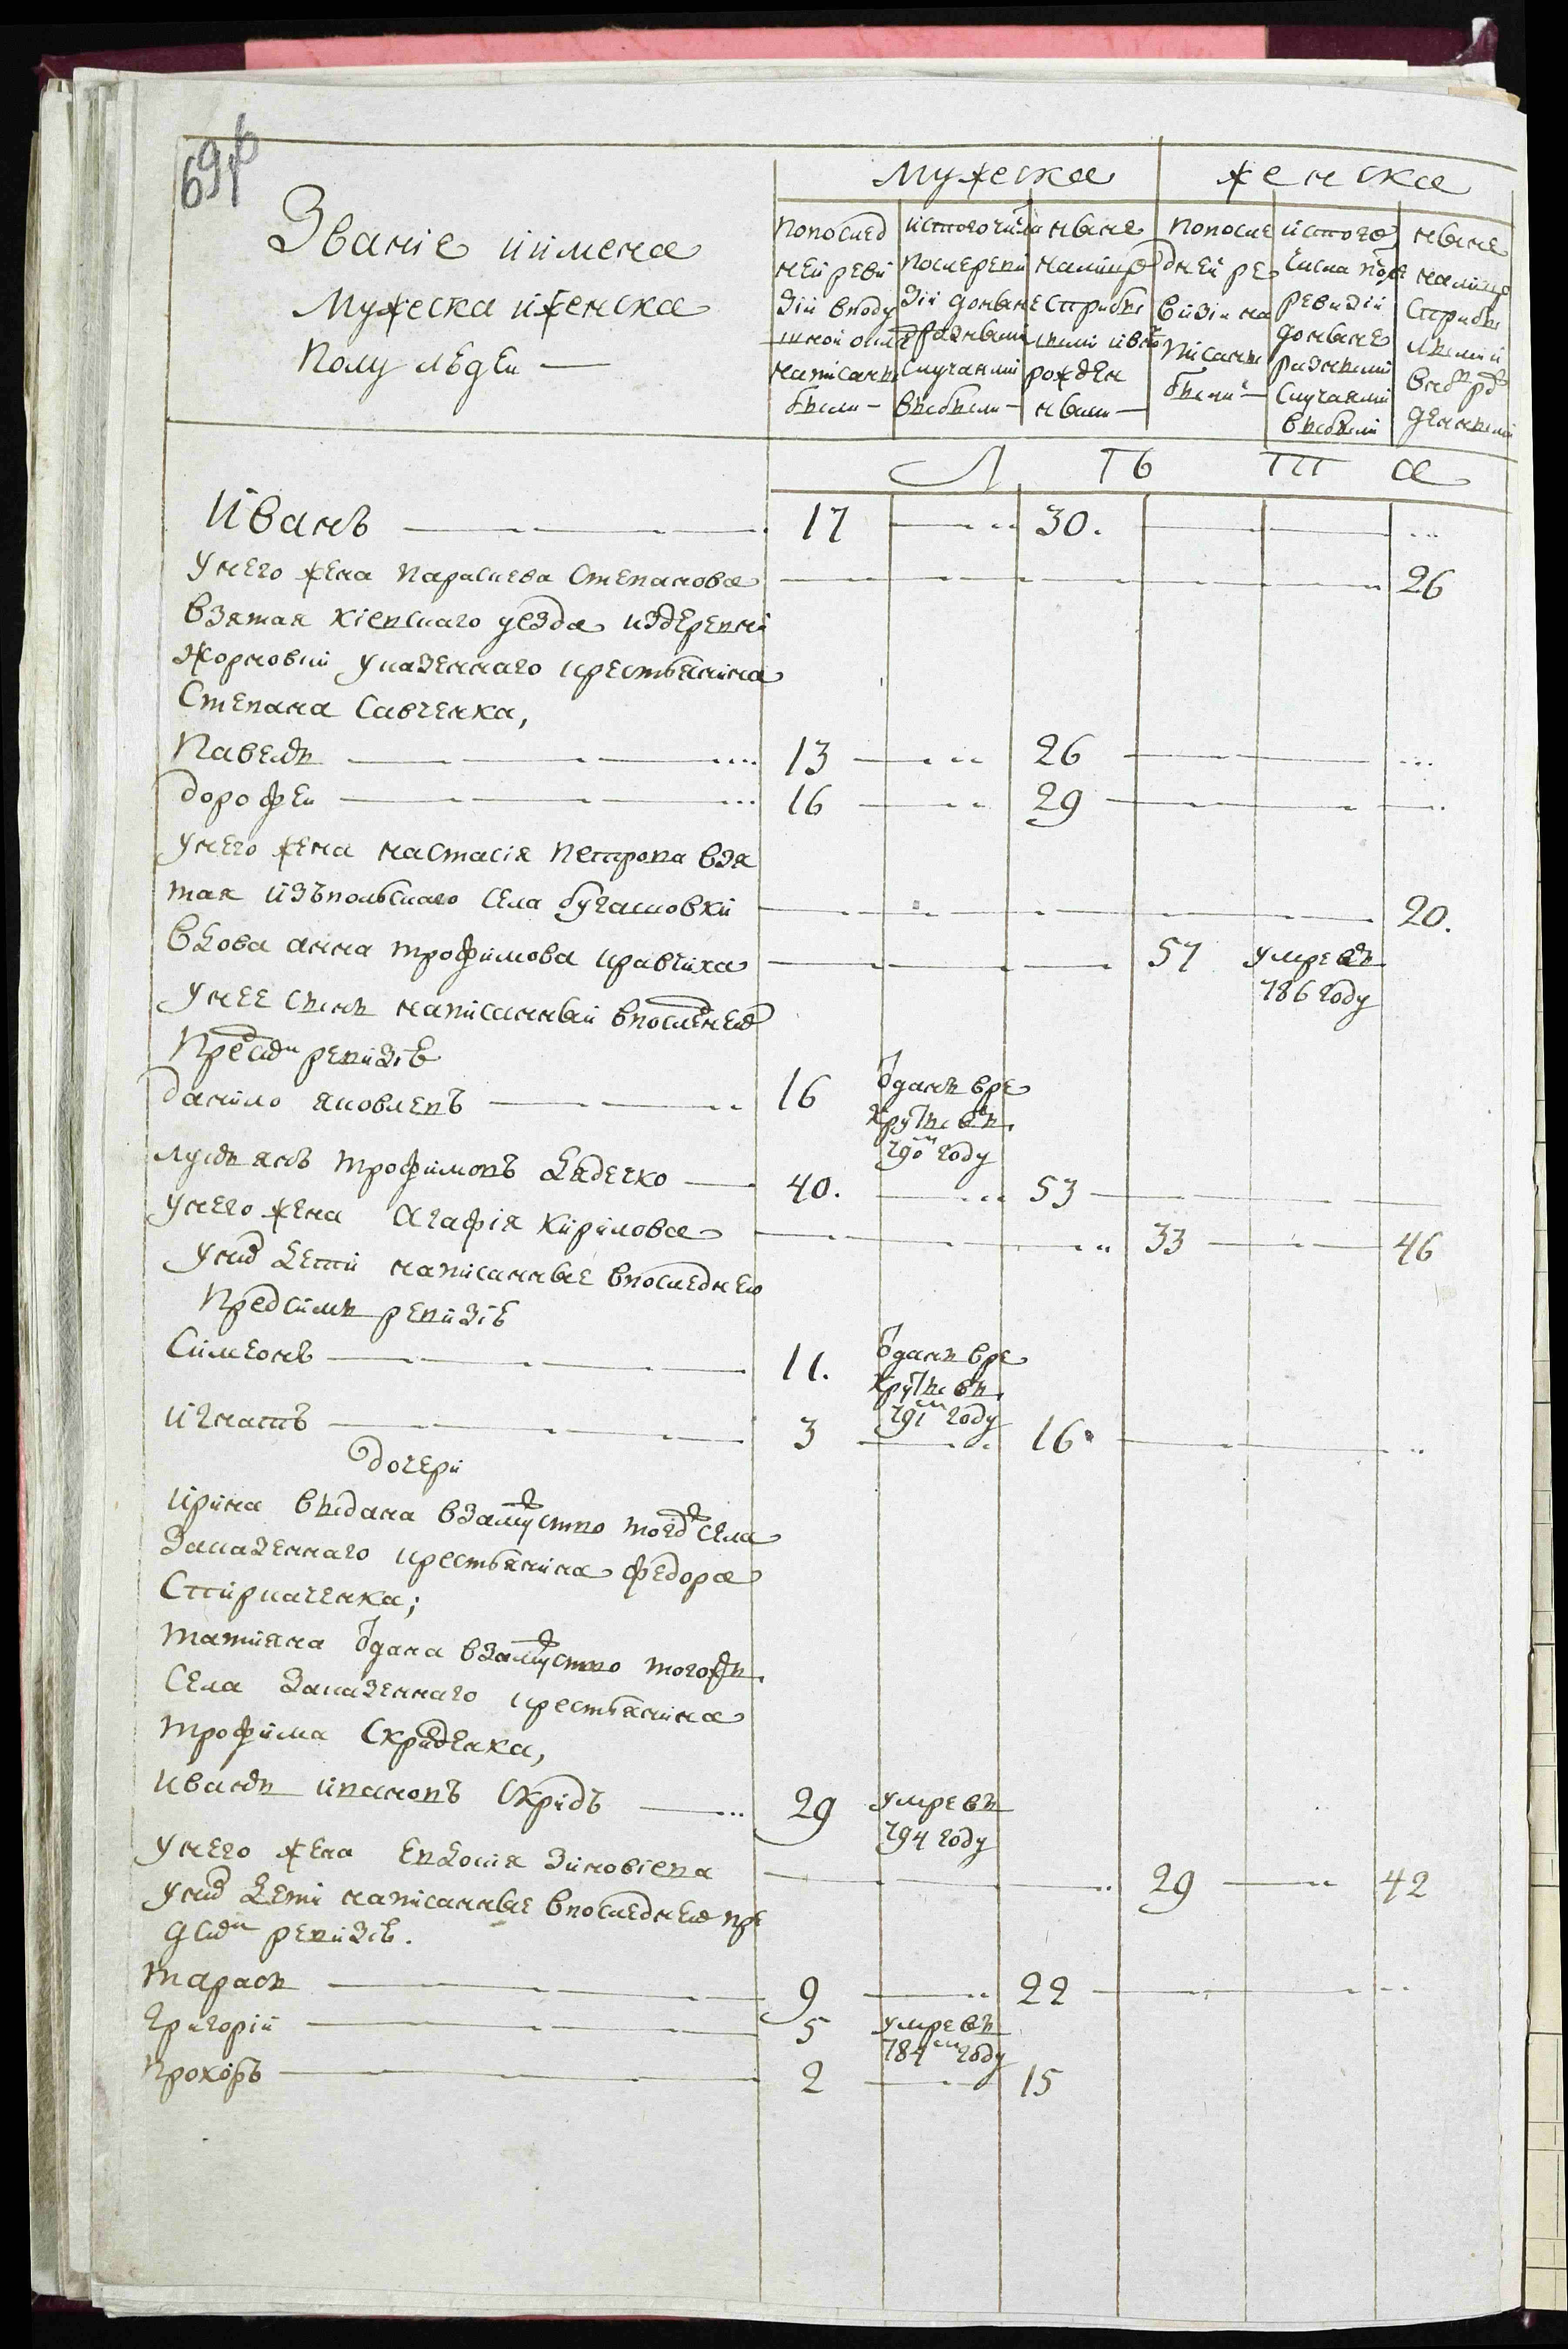 691б
Званіе иимена
Мужеска иженска
полу людеи —
Мужеска
женска
попослед
ней реви
зіи вподу
шной окла
написаны
были —
истого числа
поперепи
зіи доныне
разными
случаями
выбыли —
ныне
налицо
спрыбы
лыми ивно
рожден
ными —
попосле
дней ре
визіи на
писаны
были —
истого
числа после
ревизіи
доныне
разными
случаями
выбыли
ныне
налицо
спрыбы
лыми и
вно рож
денными
Л Тъ Т а
Иванъ 17 30.
унего жена параскева Степанова 26
взятая кіевскаго уезда издеревни
Жорновки указеннаго крестьянина
Степана Савченка,
Павелъ 13 26
дорофеи 16 29
унего жена настасія петрова взя
тая изъпольскаго села бугаиовки 20.
вдова анна трофимова кравчиха 57 умре въ
786 году
унее сынъ написанный впоследнеи
пред сим ревизіѣ
данило яковлевъ 16 Отданъ вре
круты въ
790м году
лукъянъ трофимовъ дядечко 40. 53
унего жена агафія кирилова 33 46
уних дети написанные впоследнеи
предсимъ ревизіѣ
Симеонъ 11. Отданъ вре
круты въ
791м году
игнатъ 3 16
дочери
ирина выдана взамуство тогож села
заказеннаго крестьянина федора
Стирначенка;
татияна Отдана взамуство тогожъ
села заказеннаго крестьянина
трофима Скриденка,
иванъ ивановъ Скридъ 29 умре въ
794 году
унего жена евдокия зиновіева 29 42
уних дети написанные впоследнеи пре
дсим ревизіѣ.
тарасъ 9 22
григорій 5 умре въ
784м году
прохоръ 2 15